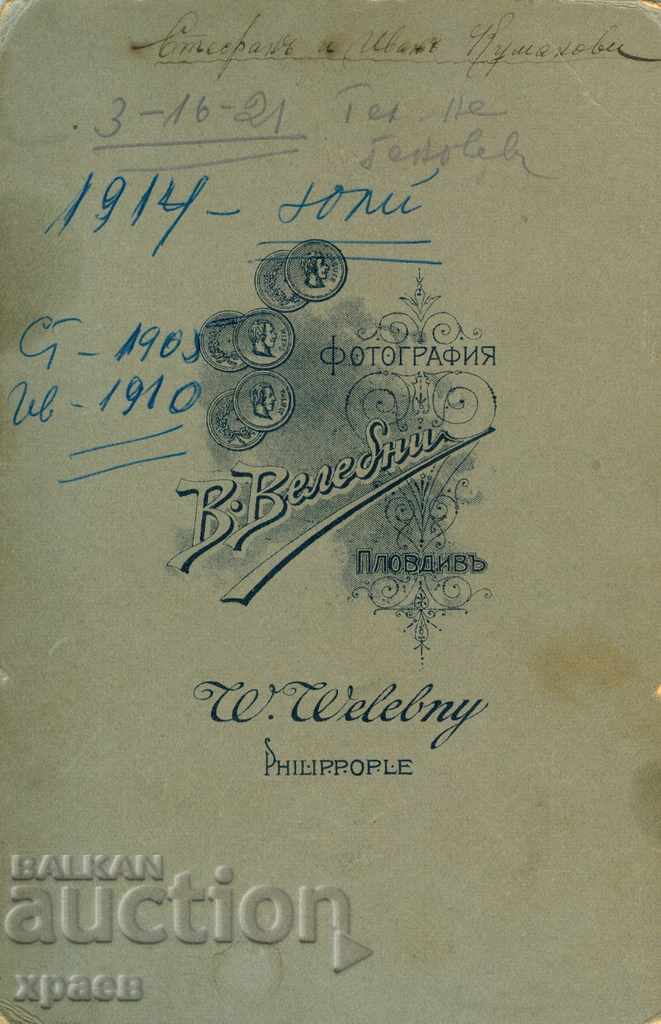 Стефанъ и Иванъ Кумановы
3-16-21 Тел. на
1914 - юлий
Ст - 1905
Ив - 1910
ФОТОГРАФИЯ
В. Велебни
ПЛОВДИВЪ
W. Welebny
PHILIPPOPLE
BALKAN
auction
храев